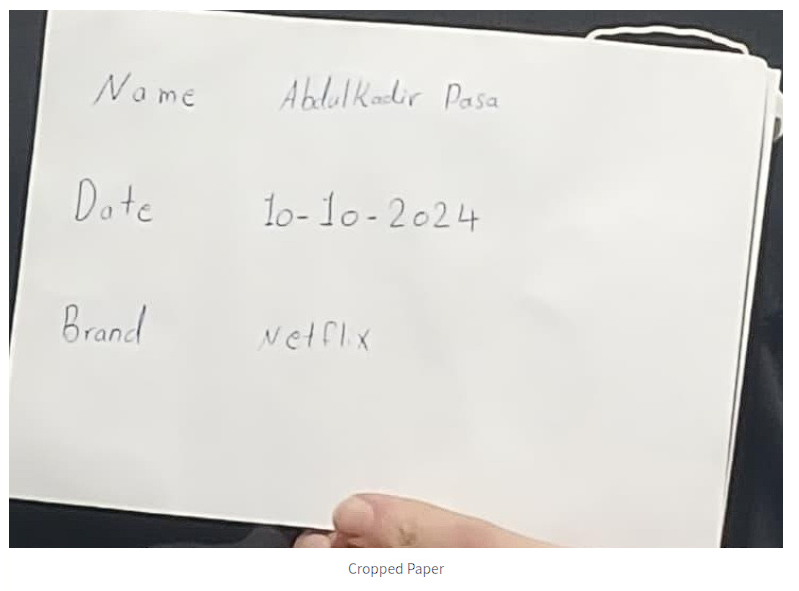 Name Abdulkadir Pasa
Date 10-10-2024
Brand Netflix
Cropped Paper